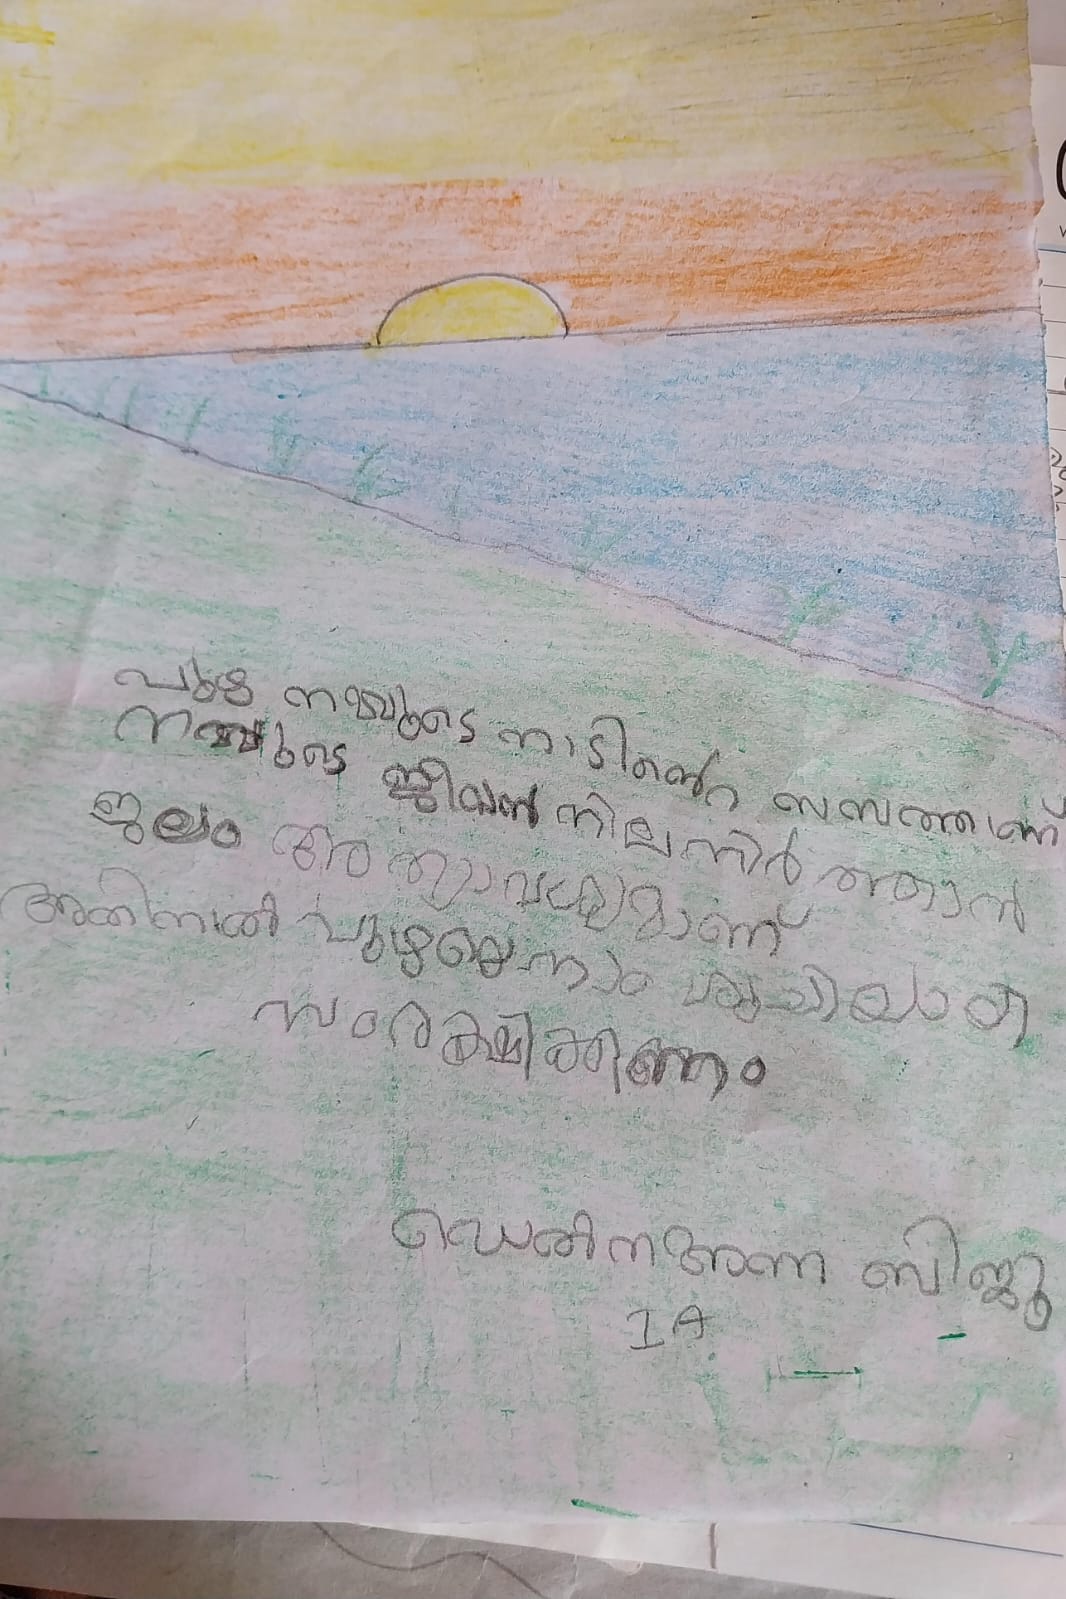 പുഴ നമ്മുടെ നാടിൻ്റെ സമ്പത്താണ്
നമ്മുടെ ജീവൻ നിലനിർത്താൻ
ജലം അത്യാവശ്യമാണ്
അതിനാൽ പുഴയെ നാം ശുചിയായി
സംരക്ഷിക്കണം
അന്ന ബിജു
1A